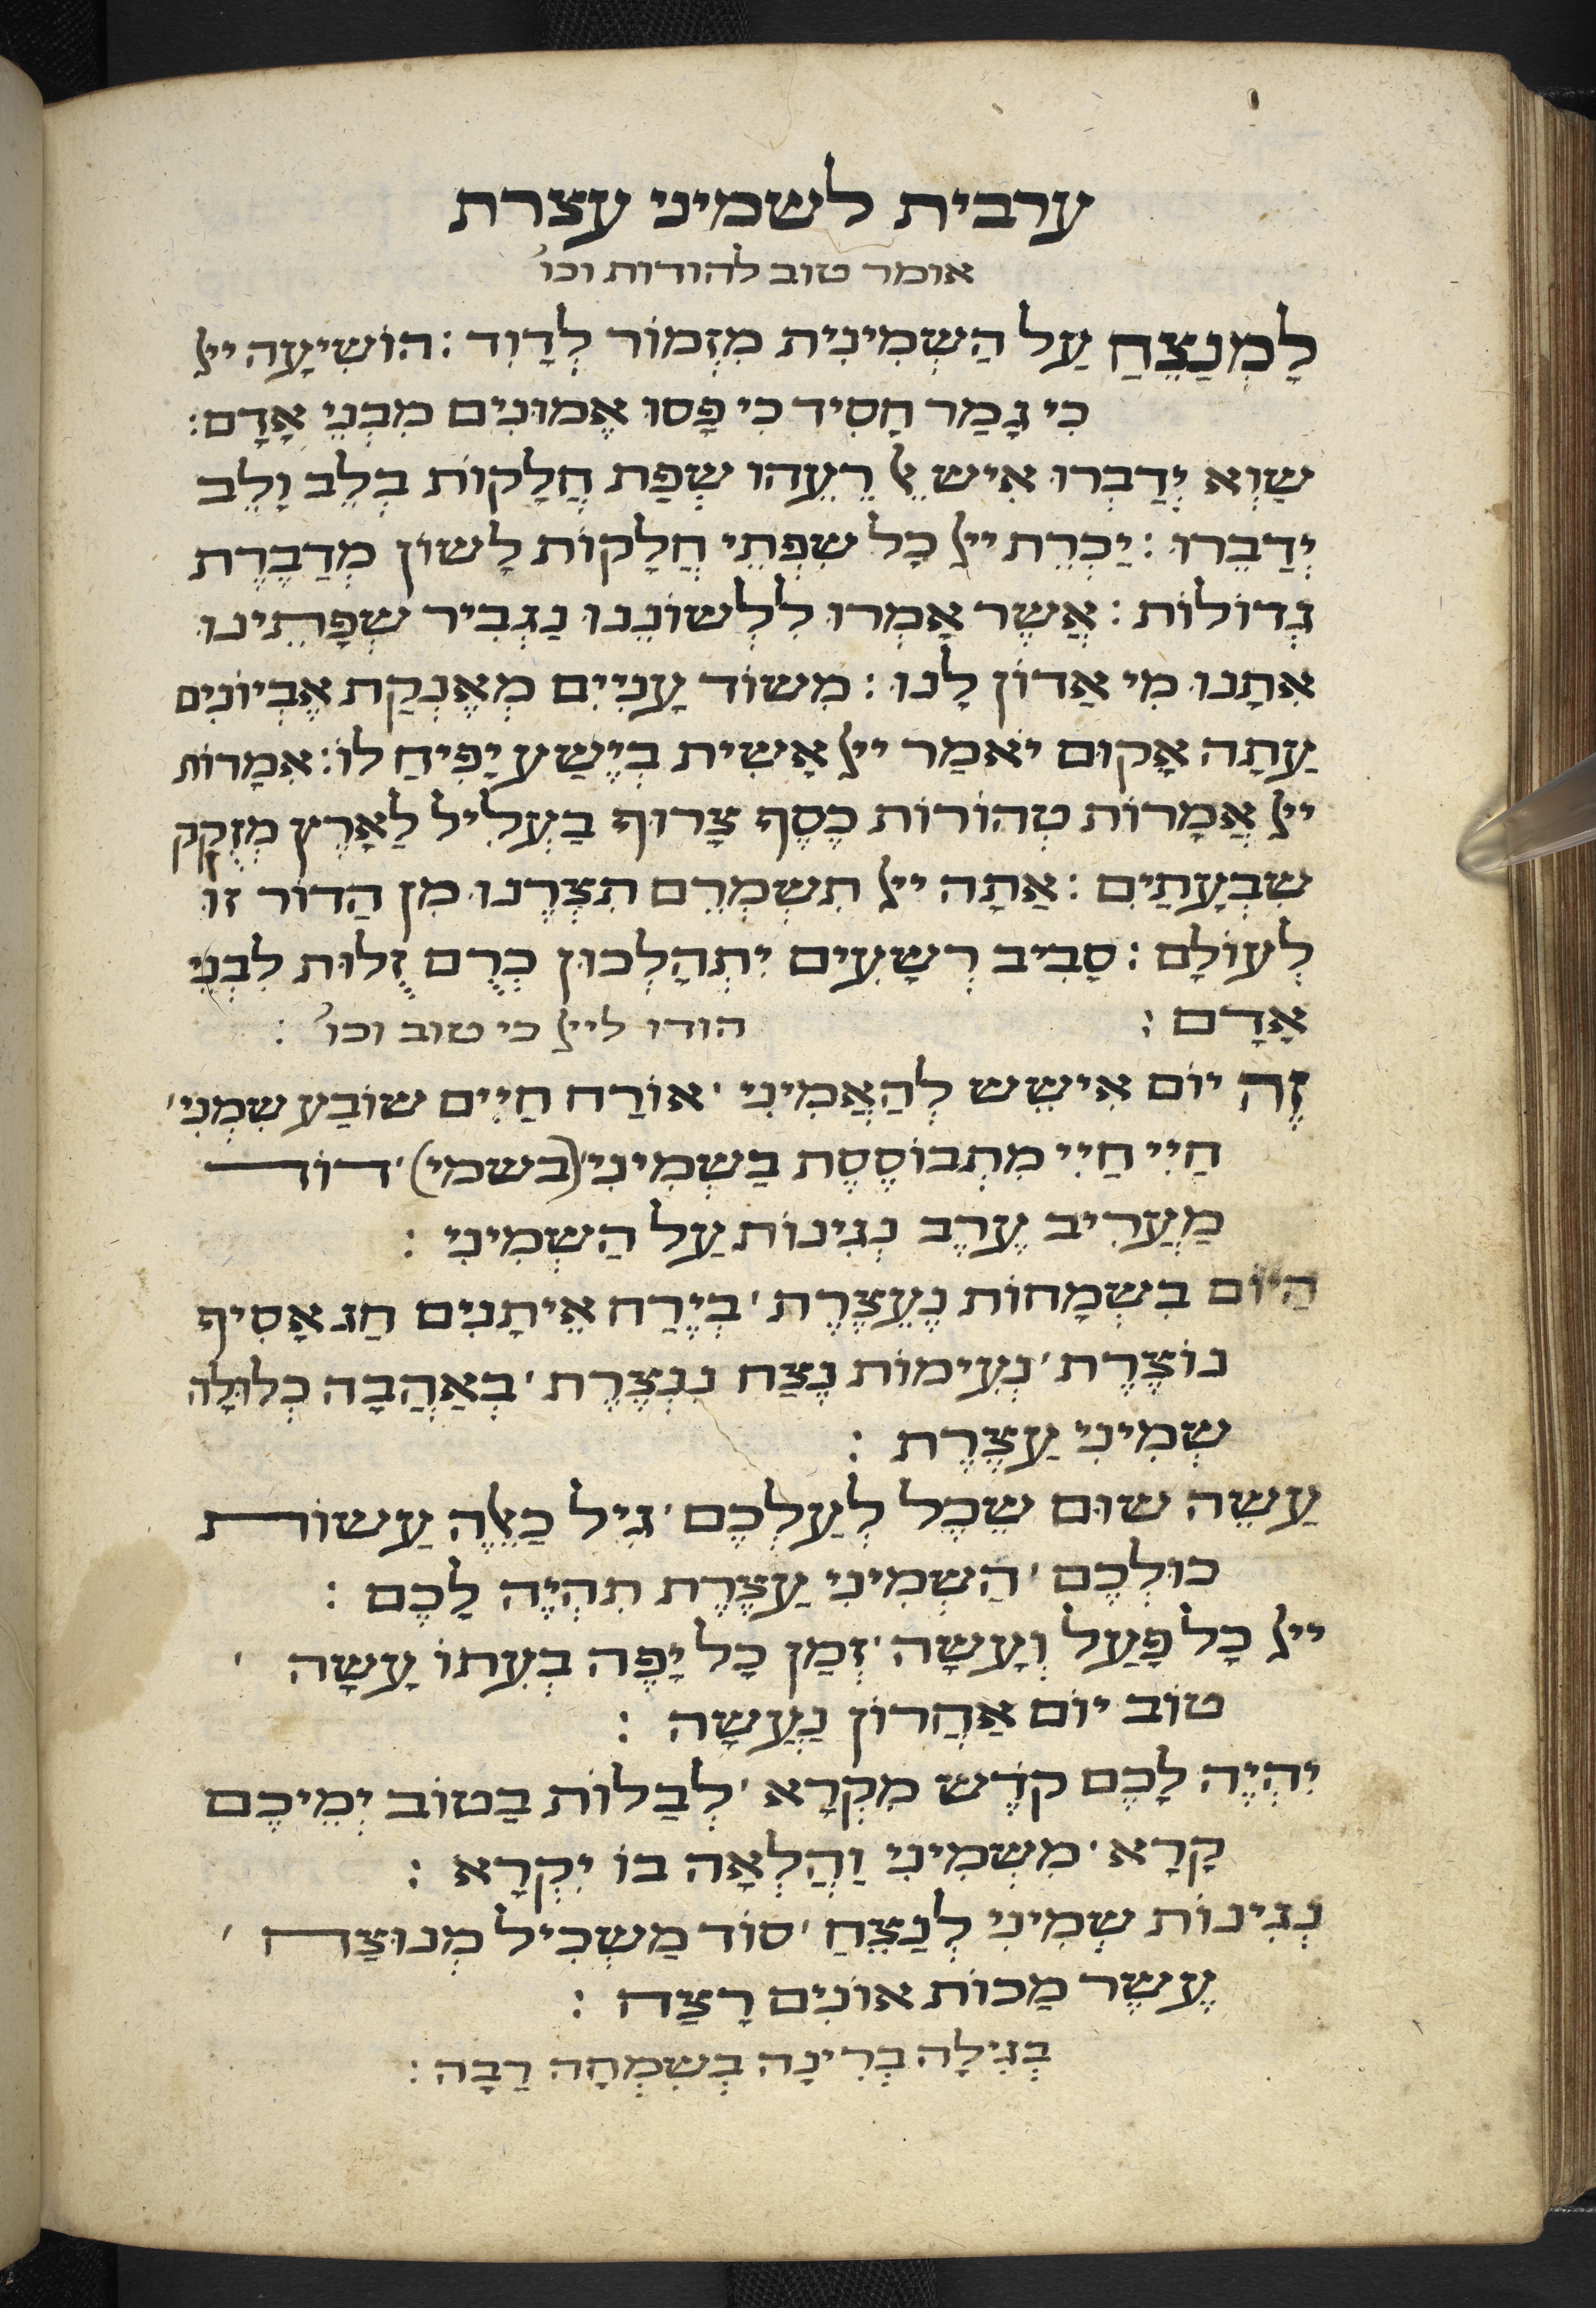 ערבית לשמיני עצרת
אומר טוב להודות וכו'
לַמְנַצֵחַ עַל הַשְמִינִית מִזְמוֹר לְדָוִד : הוֹשִיעָה ייל
כִי גָמַר חָסִיד כִי פָסוּ אֱמוּנִים מִבְנֵי אָדָם :
שָוְא יְדַבְרוּ אִיש אֶל רֵעֵהוּ שְפַת חֲלָקוֹת בְלֵב וָלֵב
יְדַבֵרוּ : יַכְרֵת ייל כָל שִפְתֵי חֲלָקוֹת לָשוֹן מְדַבֶרֶת
גְדוֹלוֹת : אֲשֶר אָמְרוּ לִלְשוֹנֵנוּ נַגְבִיר שְפָתֵינוּ
אִתָנוּ מִי אָדוֹן לָנוּ : מִשוֹד עֲנִיִים מְאֶנְקַת אֶבְיוֹנִים
עַתָה אָקוּם יֹאמַר ייל אָשִית בְיֶשַע יָפִיחַ לוֹ : אִמָרוֹת
ייל אֲמָרוֹת טְהוֹרוֹת כֶסֶף צָרוּף בַעְלִיל לָאָרֶץ מְזֻקָק
שִבְעָתַיִם : אַתָה ייל תִשְמְרֵם תִצְרֶנוּ מִן הַדוֹר זוּ
לְעוֹלָם : סָבִיב רְשָעִים יִתְהָלְכוּן כְרֻם זֻלוּת לִבְנֵי
אָדָם : הודו לייל כי טוב וכו' :
זֶה יוֹם אִישֵש לְהַאֲמִינִי ' אוֹרַח חַיִים שוֹבַע שִמְנִי '
חַיִי חַיִי מִתְבוֹסֶסֶת בַשְמִינִי ' (בשמי) ' דוד
מַעֲרִיב עֶרֶב נְגִינוֹת עַל הַשְמִינִי :
הַיוֹם בִשְמָחוֹת נֶעֱצֶרֶת ' בְיֶרַח אֵיתָנִים חַג אָסִיף
נוֹצֶרֶת ' נְעִימוֹת נֶצַח נִנְצֶרֶת ' בְאַהֲבָה כְלוּלָה
שְמִינִי עַצֶרֶת :
עַשֵה שוּם שֵכֶל לְעַלְכֶם ' גִיל כַאֵלֶה עַשוֹת
כוּלְכֶם ' הַשְמִינִי עַצֶרֶת תִהְיֶה לָכֶם :
ייל כָל פָעַל וְעָשָה ' זְמַן כָל יָפֶה בְעִתוֹ עָשָה '
טוֹב יוֹם אַחֲרוֹן נַעֲשָה :
יִהְיֶה לָכֶם קֹדֶש מִקְרָא ' לְבַלוֹת בַטוֹב יְמֵיכֶם
קָרָא ' מִשְמִינִי וַהֲלְאָה בוֹ יִקְרָא :
נְגִינוֹת שְמִינִי לְנַצֵחַ ' סוֹד מַשְכִיל מְנוּצַח '
עֶשֶר מַכוֹת אוֹנִים רָצַח :
בְגִילָה בְרִינָה בְשִמְחָה רַבָה :